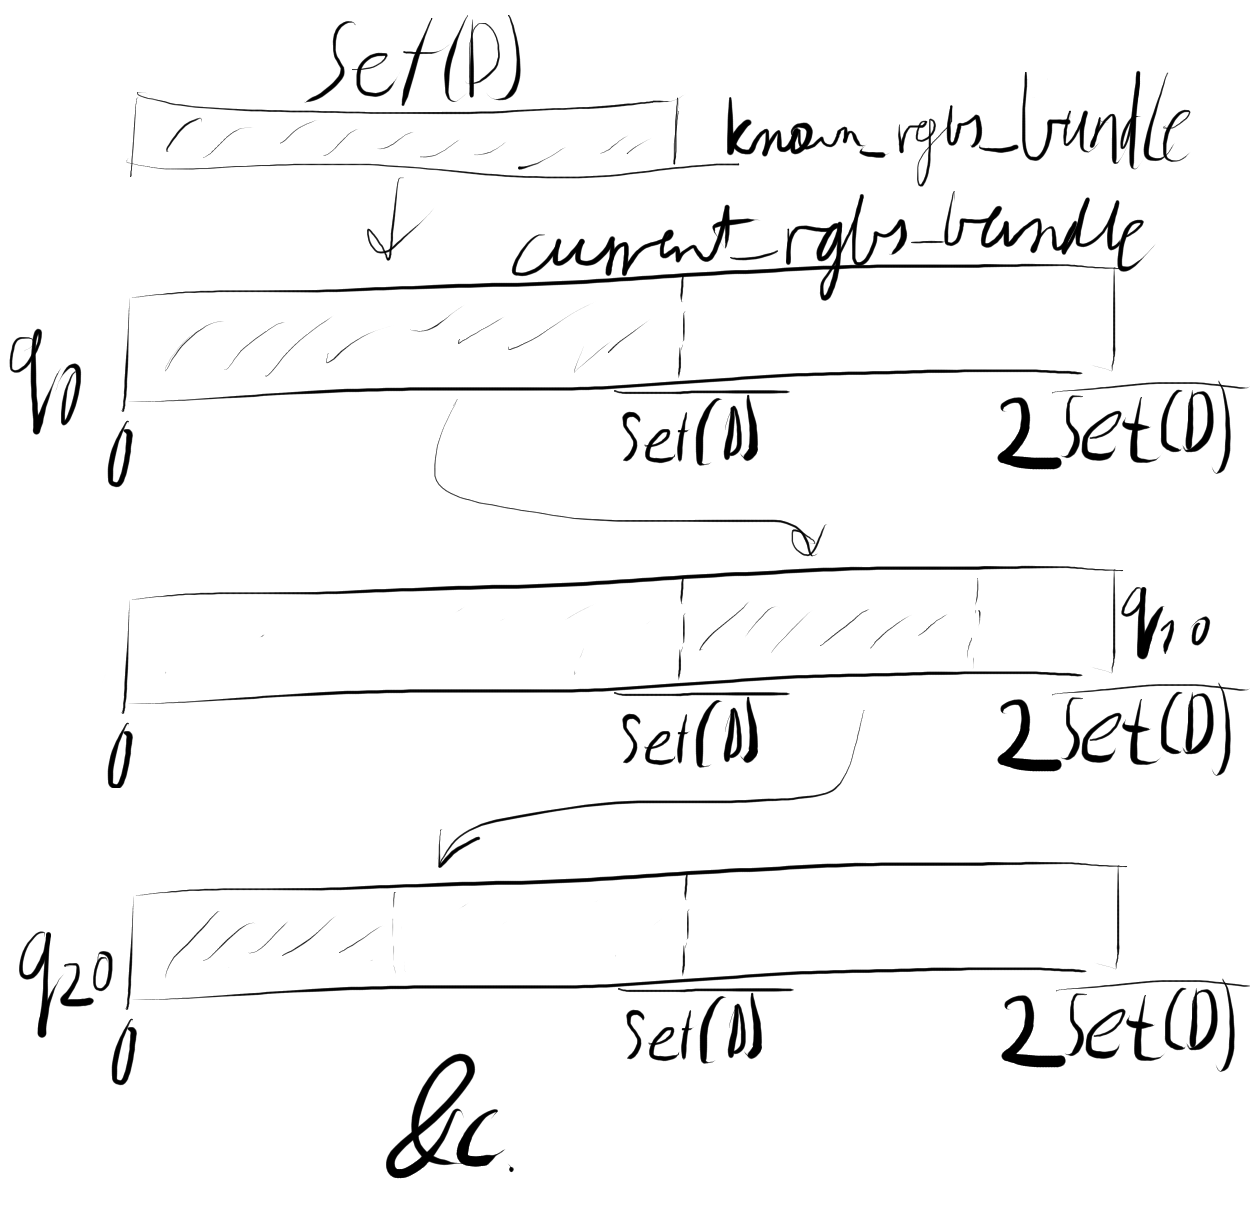 Set(D)
known_rgbs_bundle
current_rgbs_bundle
q0
0
Set(D)
2Set(D)
q10
0
Set(D)
2Set(D)
q20
0
Set(D)
2Set(D)
&c.